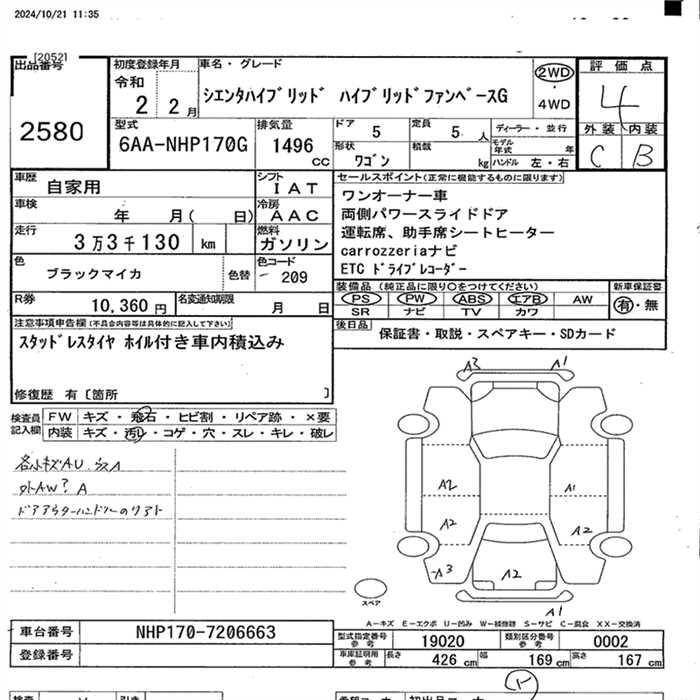 2024/10/21 11:35
[2052]
出品番号
2580
初度登録年月
令和
2 2月
車名・グレード
シエンタハイブリッド ハイブリッドファンベースG
2WD
・
4WD
評価点
4
外装 内装
C B
型式
6AA-NHP170G
排気量
1496
cc
ドア
5
定員
5 人
ディーラー・並行
形状
ワゴン
積載
kg
モデル年式 年
ハンドル 左・右
車歴
自家用
シフト
IAT
車検
年 月( 日)
冷房
AAC
走行
3万3千130 km
燃料
ガソリン
色
ブラックマイカ
色替
色コード
209
R券
10,360 円
名変通知期限
月 日
セールスポイント(正常に機能するものに限ります)
ワンオーナー車
両側パワースライドドア
運転席、助手席シートヒーター
carrozzeriaナビ
ETC ドライブレコーダー
装備品 (純正品に限り○をつけてください)
PS PW ABS エアB AW
SR ナビ TV カワ
新車保証書
有・無
後日品
保証書・取説・スペアキー・SDカード
注意事項申告欄(不具合内容等は具体的に記入して下さい)
スタッドレスタイヤ ホイル付き車内積込み
修復歴 有〔箇所 〕
検査員
記入欄
FW キズ・飛石・ヒビ割・リペア跡・×要
内装 キズ・汚れ・コゲ・穴・スレ・キレ・破レ
各小キズAU
外AW? A
A3 A1
A2 A1
A2 A2
A3 A2
A1
スペア
A－キズ E－エクボ U－凹み W－補修跡 S－サビ C－腐食 XX－交換済
車台番号
NHP170-7206663
登録番号
型式指定番号
参考
19020
類別区分番号
参考
0002
車庫証明用
参考
長さ 426 cm 幅 169 cm 高さ 167 cm